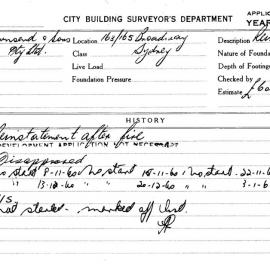 CITY BUILDING SURVEYOR'S DEPARTMENT
APPLIC
YEAR
& Sons Location 163/165 Broadway Description
Pty Ltd. Class Sydney Nature of Foundat
Live Load Depth of Footings
Foundation Pressure Checked by
Estimate £
HISTORY
Reinstatement after fire
DEVELOPMENT APPLICATION NOT NECESSARY
Disapproved
start 8-11-60 No start 15-11-60 No start 22-11-6
" 13-12-60 " 20-12-60 " " 3-1-6
not started - marked off list.